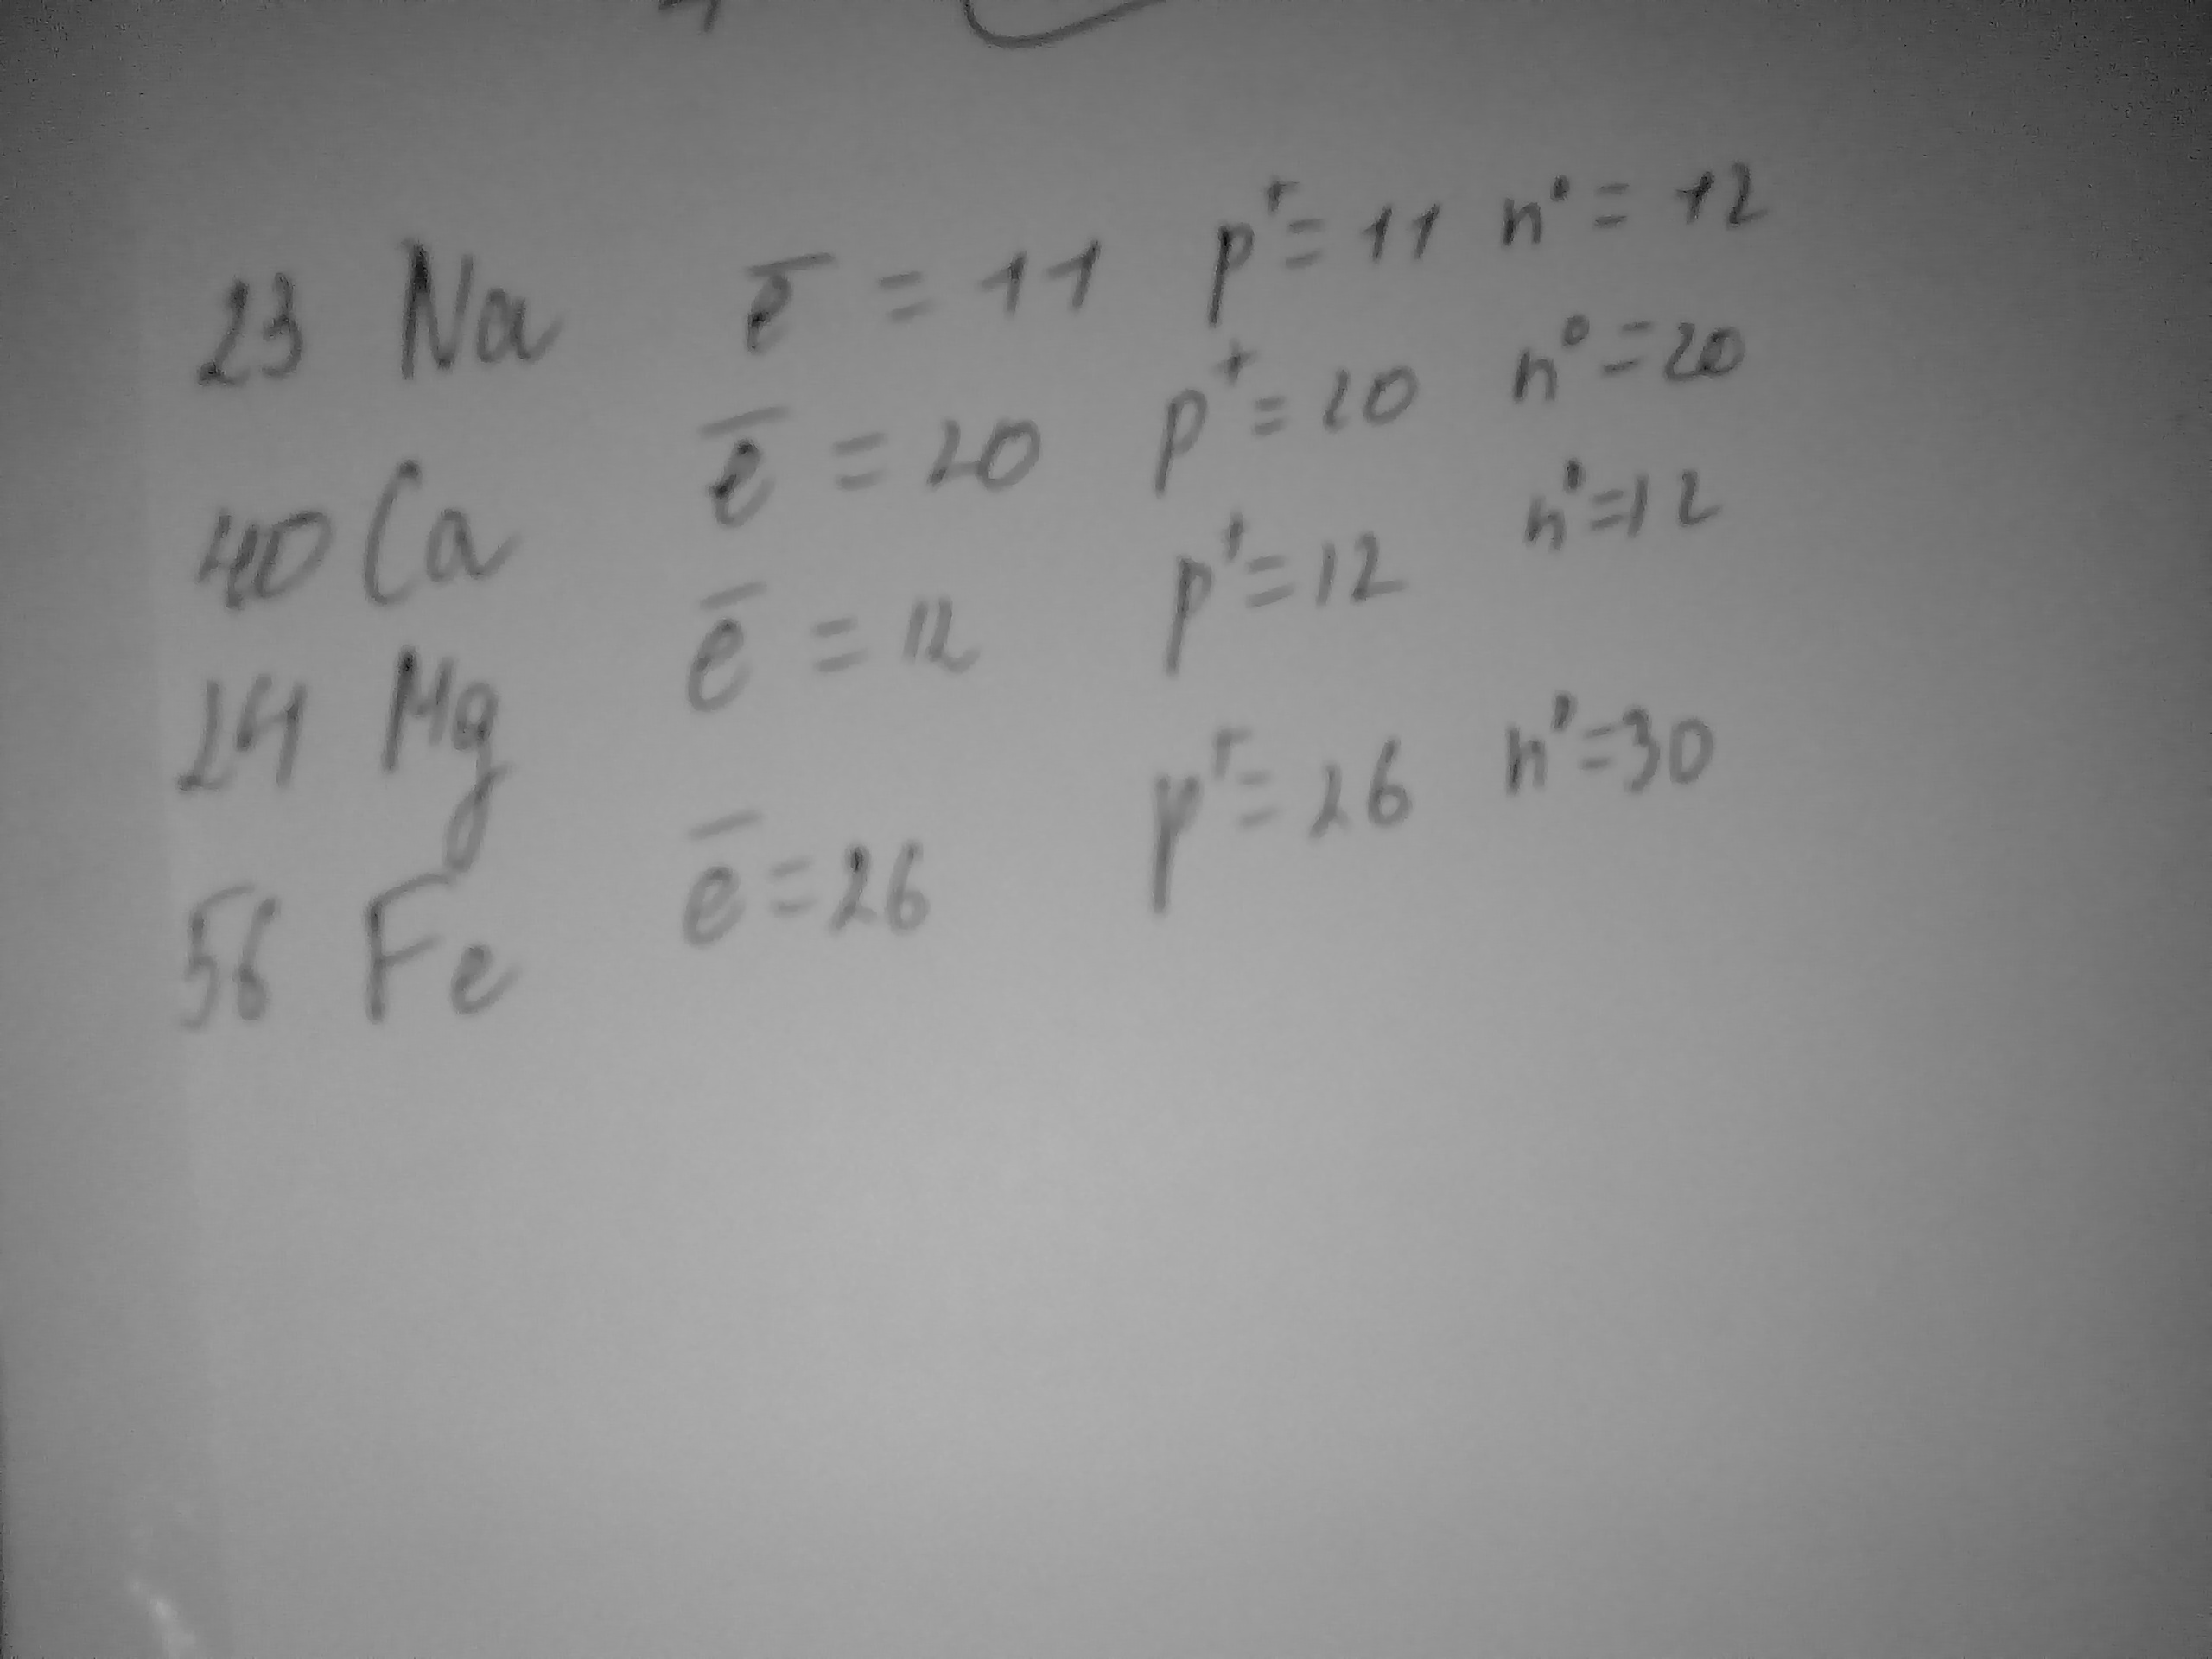 23 Na e̅ = 11 p⁺ = 11 n⁰ = 12
40 Ca e̅ = 20 p⁺ = 20 n⁰ = 20
24 Mg e̅ = 12 p⁺ = 12 n⁰ = 12
56 Fe e̅ = 26 p⁺ = 26 n⁰ = 30